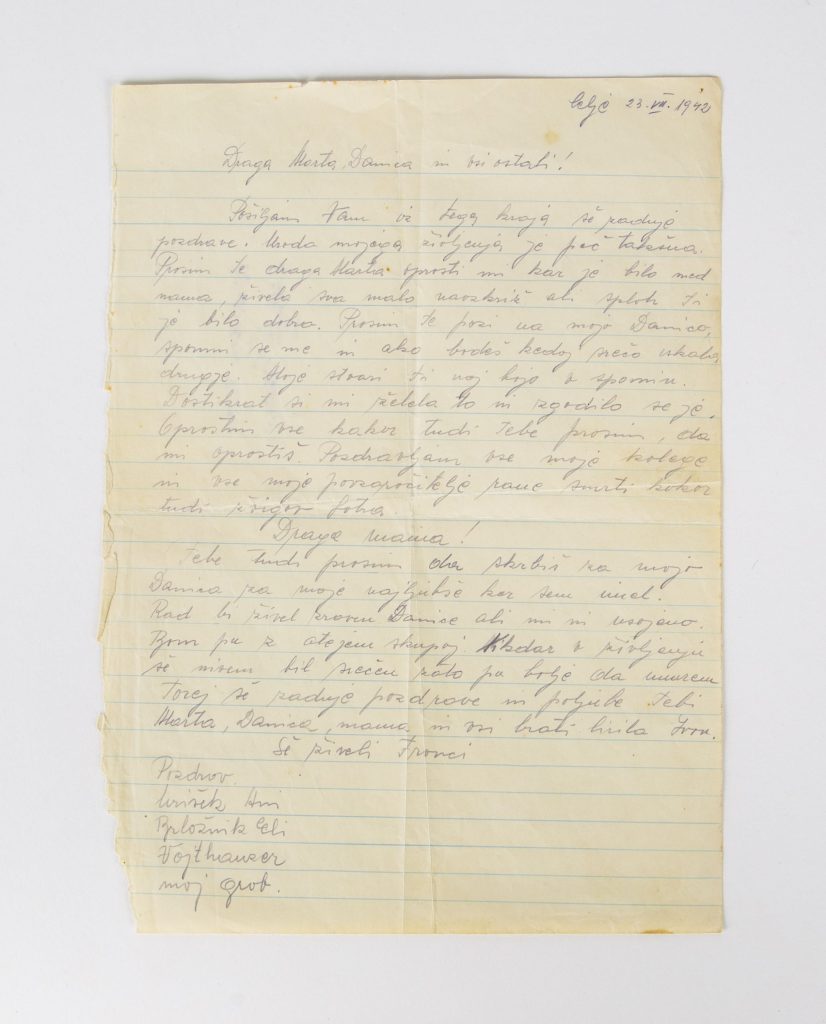 Celje 23.VII. 1942
Draga Marta, Danica in vsi ostali!
Pošiljam Vam iz tega kraja še zadnje
pozdrave. Usoda mojega življenja je peč takšna.
Prosim te draga Marta oprosti mi kar je bilo med
nama, živela sva malo navzkriž ali sploh ti
je bilo dobro. Prosim te pazi na mojo Danico,
spomni se me in ako bodeš kedaj srečo iskala
drugje. Moje stvari ti naj bojo v spomin.
Dostikrat si mi želela to in zgodilo se je.
Oprostim vse kakor tudi tebe prosim, da
mi oprostiš. Pozdravljam vse moje kolege
in vse moje povzročitelje rane smrti kokor
tudi
Draga mama!
Tebe tudi prosim da skrbiš za mojo
Danico za moje najljubše kar sem imel.
Rad bi živel zraven Danice ali mi ni usojeno.
Bom pa z atejem skupaj. Nikdar v življenju
se nisem bil srečen zato pa bolje da umrem
Torej še zadnje pozdrave in poljube Tebi
Marta, Danica, mama in vsi brati Cirila Ivon.
Še živeli Franci
Pozdrov.
Ani
Brložnik Eli
Vojthauser
moj grob.